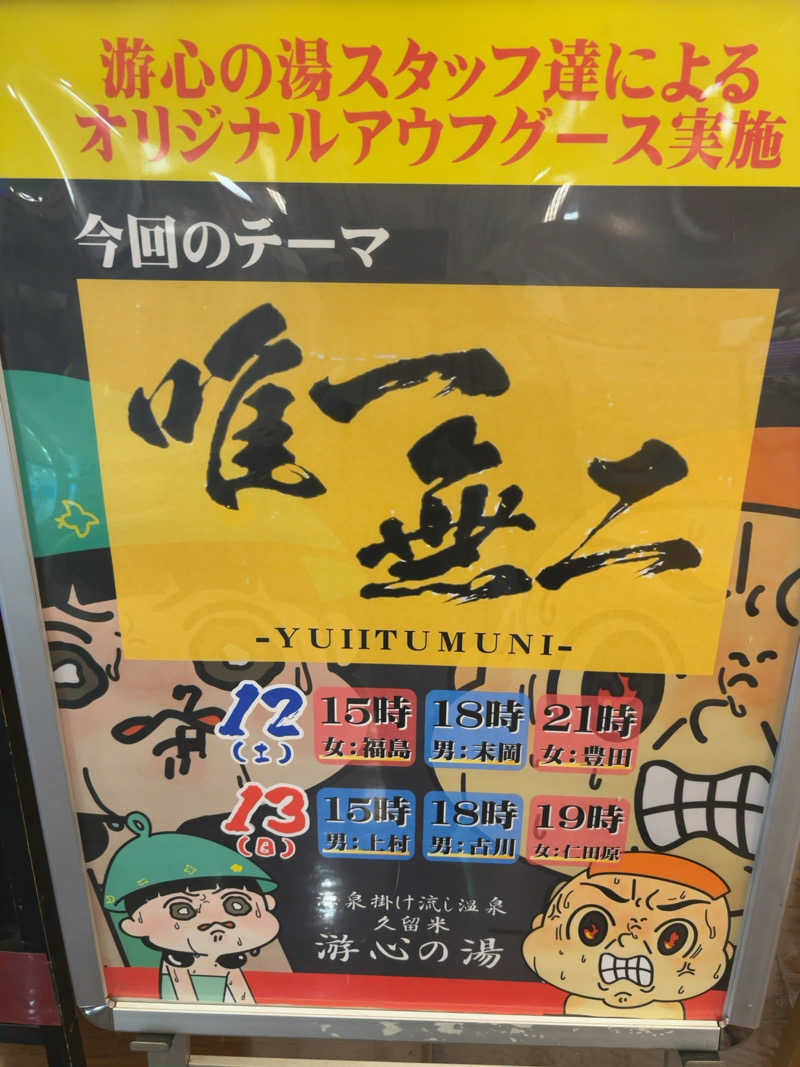 游心の湯スタッフ達による
オリジナルアウフグース実施
今回のテーマ
唯一無二
-YUIITUMUNI-
12(土) 15時 女:福島 18時 男:末岡 21時 女:豊田
13(日) 15時 男:上村 18時 男:古川 19時 女:仁田原
源泉掛け流し温泉
久留米
游心の湯